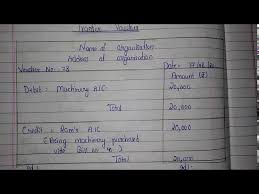 Voucher
Name of organisation
Address of organisation
Voucher No. 28 Date:
Amount (₹)
Debit: Machinery A/C 20,000
Total 20,000
Credit: Ram's A/C 20,000
(Being machinery purchased
vide Bill no
Total 20,000
Sd/- Sd/-